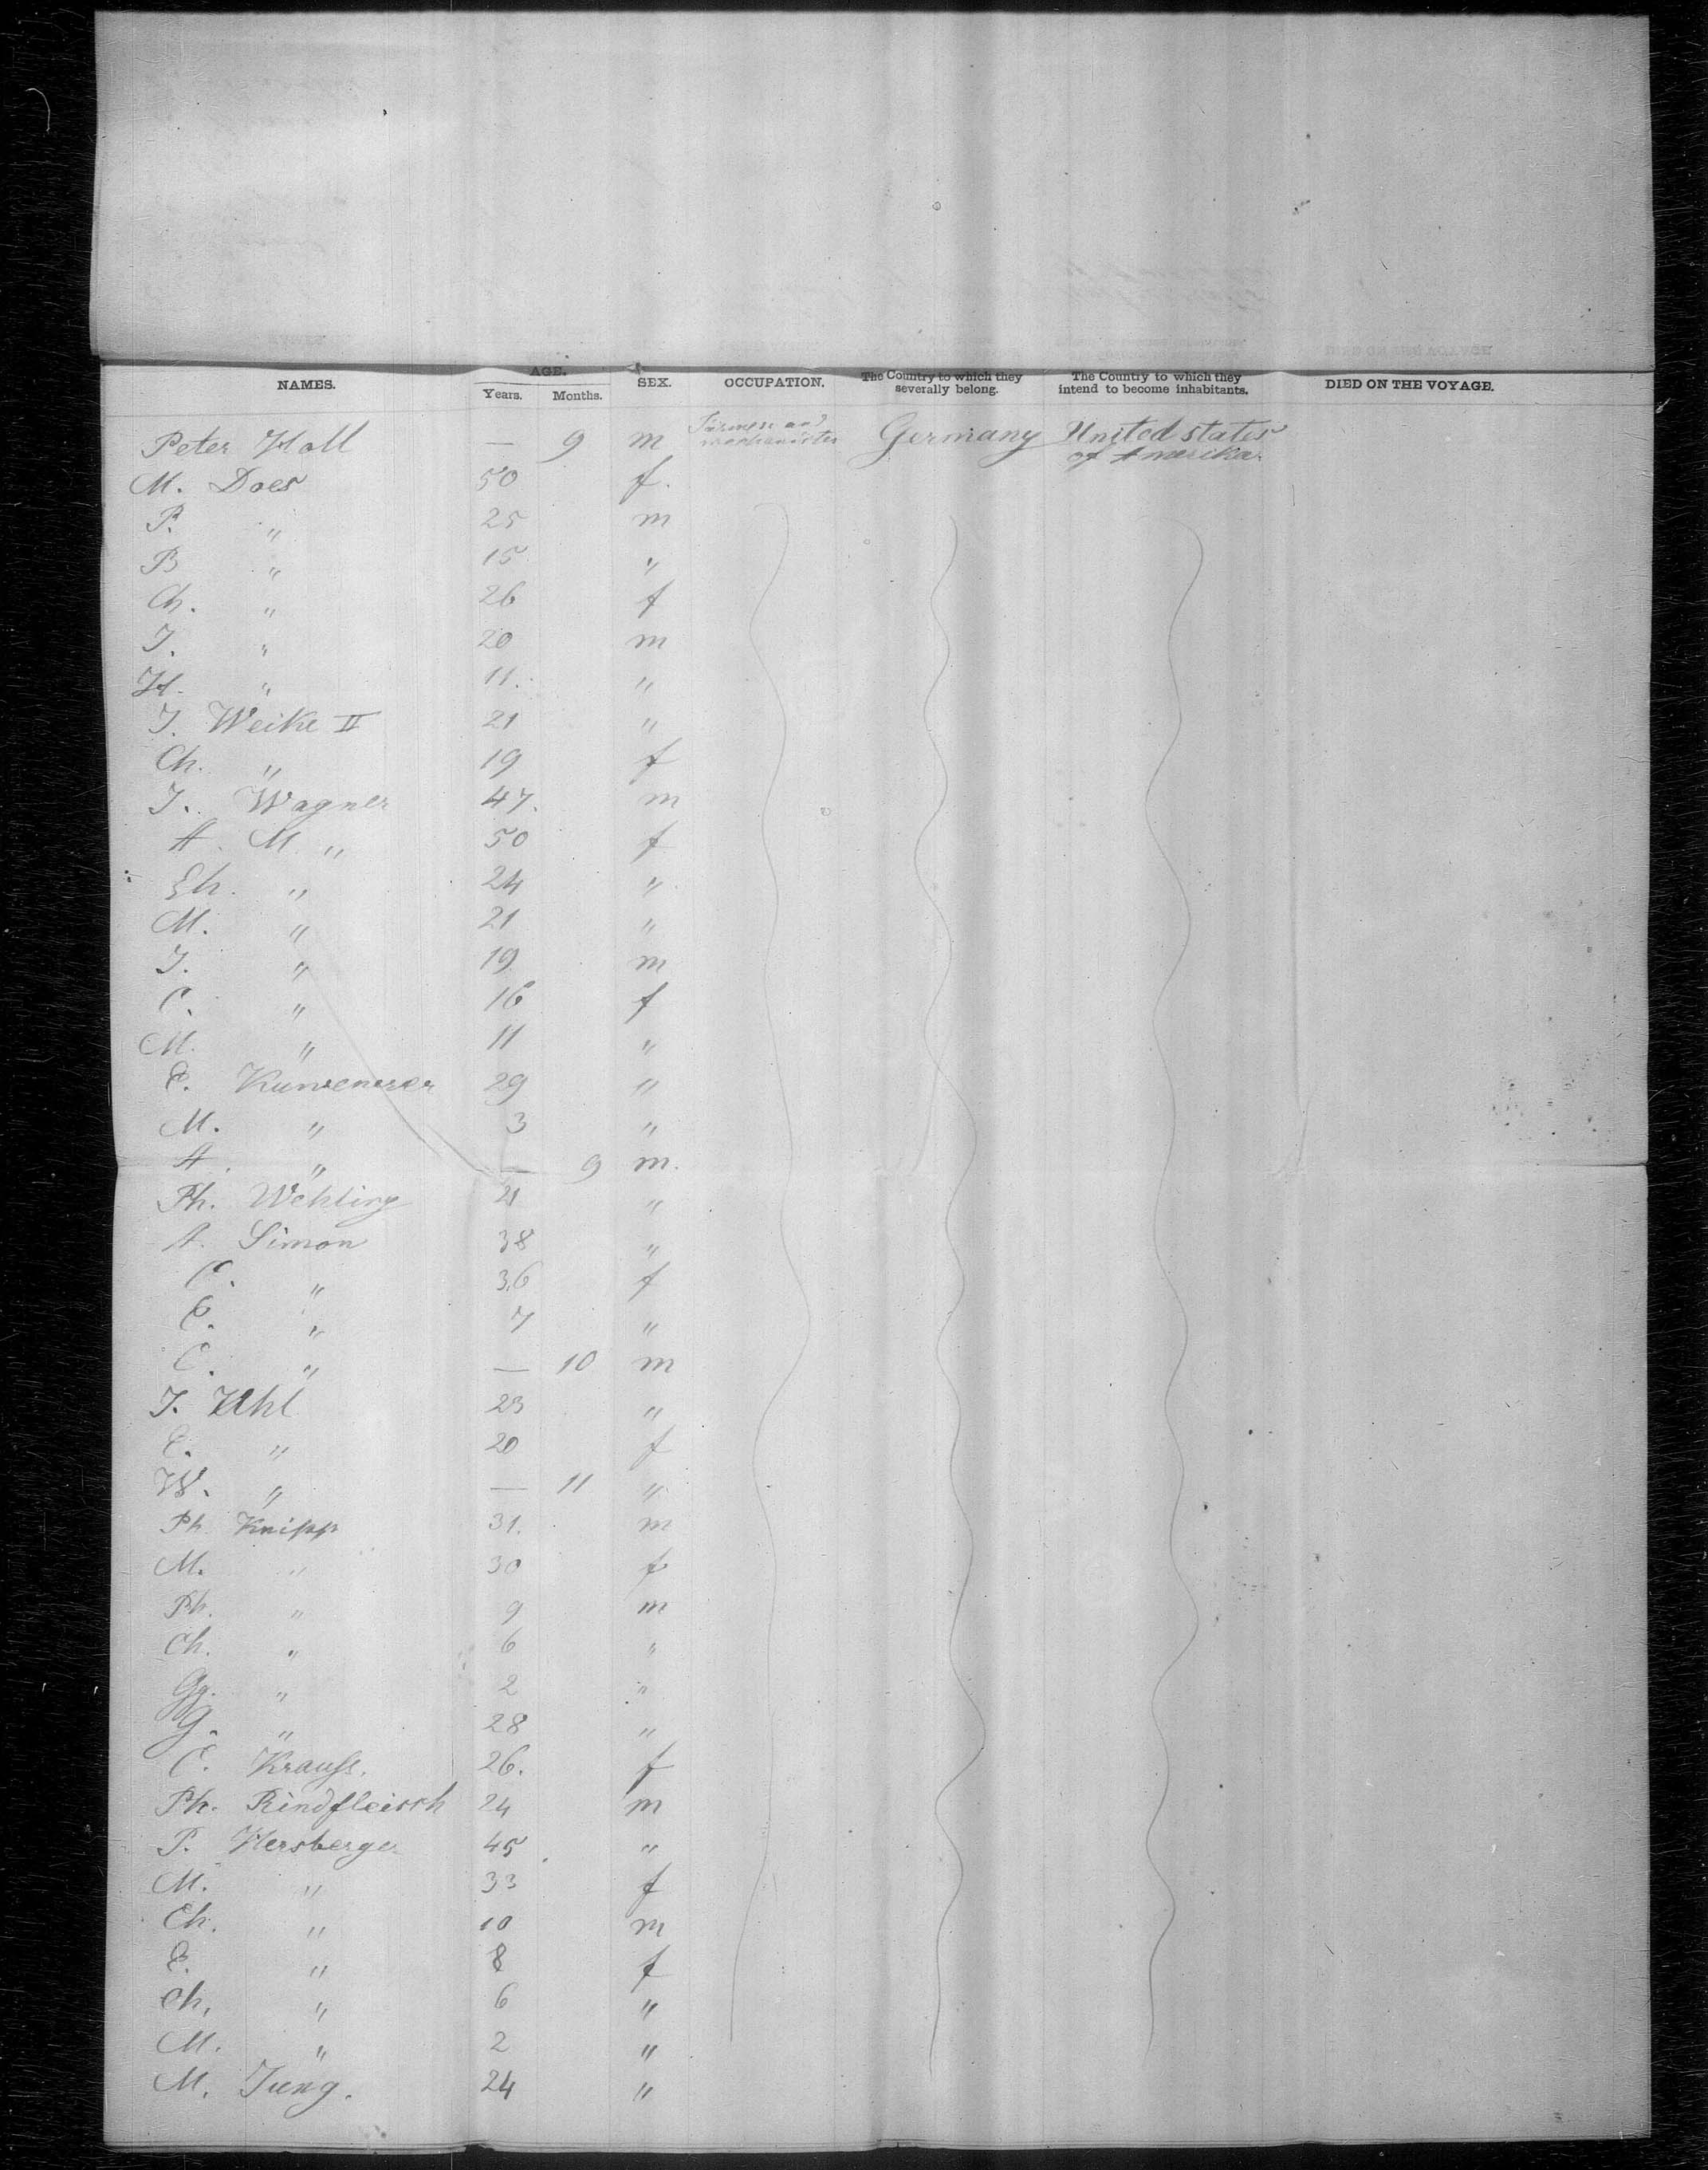 NAMES. AGE. SEX. OCCUPATION. The Country to which they severally belong. The Country to which they intend to become inhabitants. DIED ON THE VOYAGE.
Years. Months.
Peter Holl — 9 m Farmers and Germany United states of Amerika.
M. Does 50 f.
P. " 25 m
B " 15 "
Ch. " 26 f
J. " 20 m
H. " 11. "
J. Weike II 21 "
Ch. " 19 f
J. Wagner 47. m
A. M. " 50 f
Eh. " 24 "
M. " 21 "
J. " 19 m
C. " 16 f
M. " 11 "
E. 29 "
M. " 3 "
A. " — 9 m.
Ph. Wehling 21 "
A. Simon 38 "
C. " 36 f
E. " 7 "
C. " — 10 m
J. Uhl 23 "
E. " 20 f
W. " — 11 "
Ph Knipp 31. m
M. " 30 f
Ph. " 9 m
Ch. " 6 "
Gg. " 2 "
G. " 28 "
C. Krauss. 26. f
Ph. Rindfleisch 24 m
P. Hersberger 45 "
M. " 33 f
Ch. " 10 m
E. " 8 f
Ch, " 6 "
M. " 2 "
M. Jung. 24 "